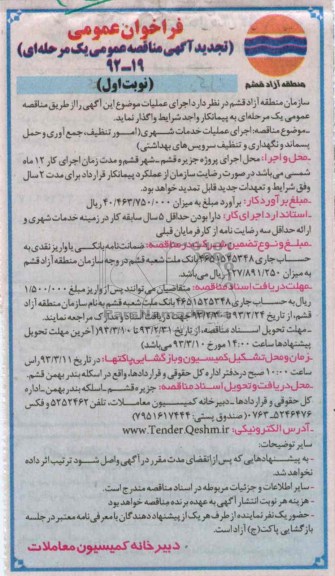 فراخوان عمومی
(تجدید آگهی مناقصه عمومی یک مرحله‌ای)
۹۲-۱۹
(نوبت اول)
منطقه آزاد قشم
سازمان منطقه آزاد قشم در نظر دارد اجرای عملیات موضوع این آگهی را از طریق مناقصه
عمومی یک مرحله‌ای به پیمانکار واجد شرایط واگذار نماید.
ـ موضوع مناقصه: اجرای عملیات خدمات شهری (امور تنظیف، جمع آوری و حمل
پسماند و نگهداری و تنظیف سرویس های بهداشتی)
ـ محل و اجرا: محل اجرای پروژه جزیره قشم ـ شهر قشم و مدت زمان اجرای کار ۱۲ ماه
شمسی می باشد در صورت رضایت سازمان از عملکرد پیمانکار قرارداد برای مدت ۲ سال
وفق شرایط و تعهدات جدید قابل تمدید خواهد بود.
ـ مبلغ برآورد کار: برآورد مبلغ به میزان ۴۰/۴۶۳/۷۵۰/۰۰۰ ریال
ـ استاندارد اجرای کار: دارا بودن حداقل ۵ سال سابقه کار در زمینه خدمات شهری و
ارائه حداقل سه رضایت نامه از کارفرمایان قبلی
ـ مبلغ و نوع تضمین شرکت در مناقصه: ضمانت نامه بانکی یا واریز نقدی به
حساب جاری ۴۶۵۱۵۴۵۳۴۸ بانک ملت شعبه قشم در وجه سازمان منطقه آزاد قشم
به میزان ۲/۰۲۷/۸۹۱/۲۵۰ ریال می باشد.
ـ مهلت دریافت اسناد مناقصه: متقاضیان می توانند پس از واریز مبلغ ۱/۵۰۰/۰۰۰
ریال به حساب جاری ۴۶۵۱۵۲۵۳۴۸ بانک ملت شعبه قشم به نام سازمان منطقه آزاد
قشم، از تاریخ ۹۳/۲/۲۴ تا ۹۳/۲/۳۰ جهت دریافت اسناد و مدارک مراجعه نمایند.
ـ مهلت تحویل اسناد مناقصه، از تاریخ ۹۳/۲/۳۱ تا ۹۳/۳/۱۰ (آخرین مهلت تحویل
پیشنهادها ساعت ۱۴:۰۰ مورخ ۹۳/۳/۱۰ می باشد)
ـ زمان و محل تشکیل کمیسیون و بازگشایی پاکتها: در تاریخ ۹۳/۳/۱۱ راس
ساعت ۱۰:۰۰ صبح در دفتر اداره کل حقوقی و قراردادها، واقع در اسکله بندر بهمن قشم.
ـ محل دریافت و تحویل اسناد مناقصه: جزیره قشم ـ اسکله بندر بهمن ـ اداره
کل حقوقی و قراردادها ـ دبیرخانه کمیسیون معاملات، تلفن ۵۲۵۲۴۶۲ و فکس
۵۲۴۶۴۷۶-۰۷۶۳ (صندوق پستی: ۷۹۵۱۶۱۷۴۴۴)
ـ آدرس الکترونیکی: www.Tender.Qeshm.ir
سایر توضیحات:
ـ به پیشنهادهایی که پس از انقضای مدت مقرر در آگهی واصل شود ترتیب اثر داده
نخواهد شد.
ـ سایر اطلاعات و جزئیات مربوطه در اسناد مناقصه مندرج است.
ـ هزینه هر نوبت انتشار آگهی به عهده برنده مناقصه خواهد بود
ـ حضور یک نفر نماینده از طرف هر یک از پیشنهاد دهندگان با معرفی نامه معتبر در جلسه
بازگشایی پاکت (ج) آزاد است.
دبیرخانه کمیسیون معاملات